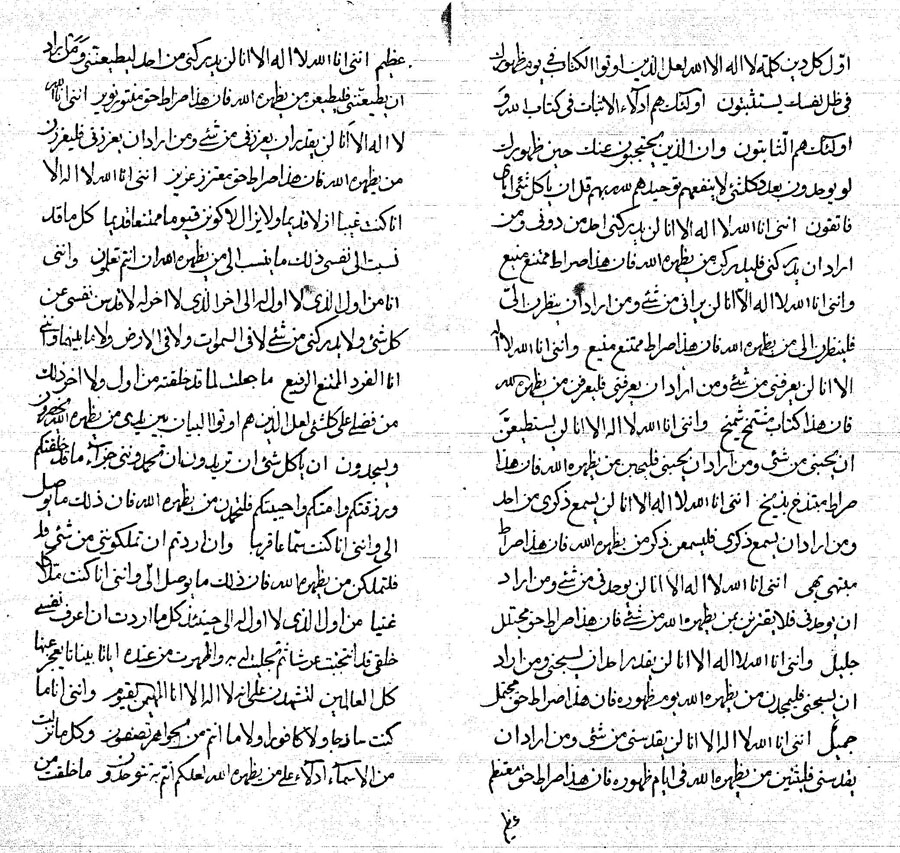 اول كل دين كلمة لا اله الا الله لعل الذين اوتوا الكتاب في يوم ظهورك
في ظل نفسك يستثبتون اولئك هم ادلاء الاثبات في كتاب الله و
اولئك هم الثابتون وان الذين يحتجبون عنك حين ظهورك
لو يوحدون بعدد كلشئ لا ينفعهم توحيدهم لله ربهم قل ان يا كل شئ اياي
فاتقون انني انا الله لا اله الا انا لن يدركني احد من دوني ومن
اراد ان يدركني فليدركن من يظهره الله فان هذا صراط ممتنع منيع
وانني انا الله لا اله الا انا لن يراني من شئ ومن اراد ان ينظرن الي
فلينظرن الى من يظهره الله فان هذا صراط ممتنع منيع وانني انا الله لا اله
الا انا لن يعرفني من شئ ومن اراد ان يعرفني فليعرفن من يظهره الله
فان هذا كتاب شمخ شميخ وانني انا الله لا اله الا انا لن يستطيعن
ان يحبني من شئ ومن اراد ان يحبني فليحبن من يظهره الله فان هذا
صراط مبتذخ بذيخ انني انا الله لا اله الا انا لن يسمع ذكري من احد
ومن اراد ان يسمع ذكري فليسمعن ذكر من يظهره الله فان هذا صراط
مبتهي بهي انني انا الله لا اله الا انا لن يوحدني من شئ ومن اراد
ان يوحدني فلا يقترنن بمن يظهره الله من شئ فان هذا صراط حق مجتلل
جليل وانني انا الله لا اله الا انا لن يقدر احد ان يسبحني ومن اراد
ان يسبحني فليمجدن من يظهره الله يوم ظهوره فان هذا صراط حق مجتمل
جميل انني انا الله لا اله الا انا لن يقدسني من شئ ومن اراد ان
يقدسني فليثنين من يظهره الله في ايام ظهوره فان هذا صراط حق معتظم
عظيم انني انا الله لا اله الا انا لن يدركني من احد ليطيعنني ومن اراد
ان يطيعنني فليطيعن من يظهره الله فان هذا صراط حق متنور نوير انني انا الله
لا اله الا انا لن يقدر ان يعززني من شئ ومن اراد ان يعززني فليعززن
من يظهره الله فان هذا صراط حق معتزز عزيز انني انا الله لا اله الا
انا كنت غيبا ازلا قديما ولا يزال لاكونن قيوما ممتنعا قديما كل ما قد
نسبت الى نفسي ذلك ما ينسب الى من يظهره الله ان انتم تعلمون وانني
انا من اول الذي لا اول له الى اخر الذي لا اخر له لاقدسن نفسي عن
كل شئ ولا يدركني من شئ لا في السموات ولا في الارض ولا ما بينهما وانني
انا الفرد الممتنع الرفيع ما جعلت لما قد خلقته من اول ولا اخر ذلك
من فضلي على كلشئ لعل الذين هم اوتوا البيان بين يدي من يظهره الله يحضرون
ويسجدون ان يا كل شئ ان تريدون ان تحمدونني جزاء ما قد خلقتكم
ورزقتكم وامتكم واحييتكم فلتحمدن من يظهره الله فان ذلك ما يوصل
الي وانني انا كنت سماعا قريبا وان اردتم ان تملكونني من شئ فل
فلتملكن من يظهره الله فان ذلك ما يوصل الي وانني انا كنت ملاكا
غنيا من اول الذي لا اول له الى حينئذ كل ما اردت ان اعرف نفسي
خلقي قد انتجبت عرشا ثم تجليت له به واظهرت من عنده ايات بينات يعجز عنها
كل العالمين لتشهدن على انه لا اله الا انا المهيمن القيوم وانني انا ما
كنت ساذجا ولا كافورا ولا ما انتم من جواهر تصفون وكل ما نزلت
من الاسماء ادلاء على من يظهره الله لعلكم انتم به توحدون وما خلقت من